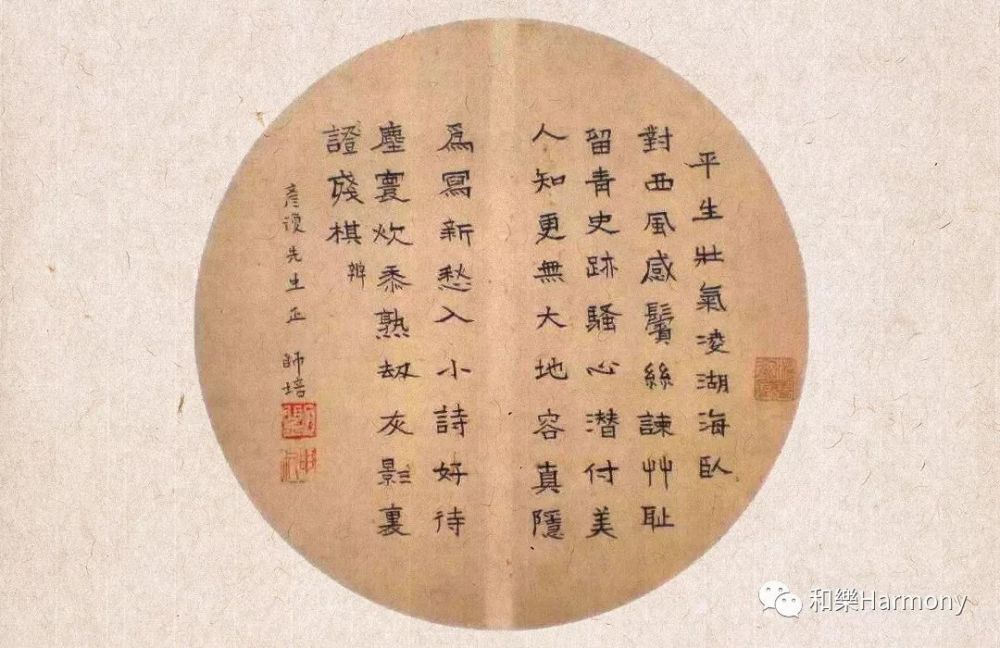 平生壯氣凌湖海臥
對西風感鬢絲諫艸耻
留青史跡騷心潛付美
人知更無大地容真隱
爲寫新愁入小詩好待
塵寰炊黍熟劫灰影裏
證殘棋 辨
彥復先生正 師培
和樂Harmony